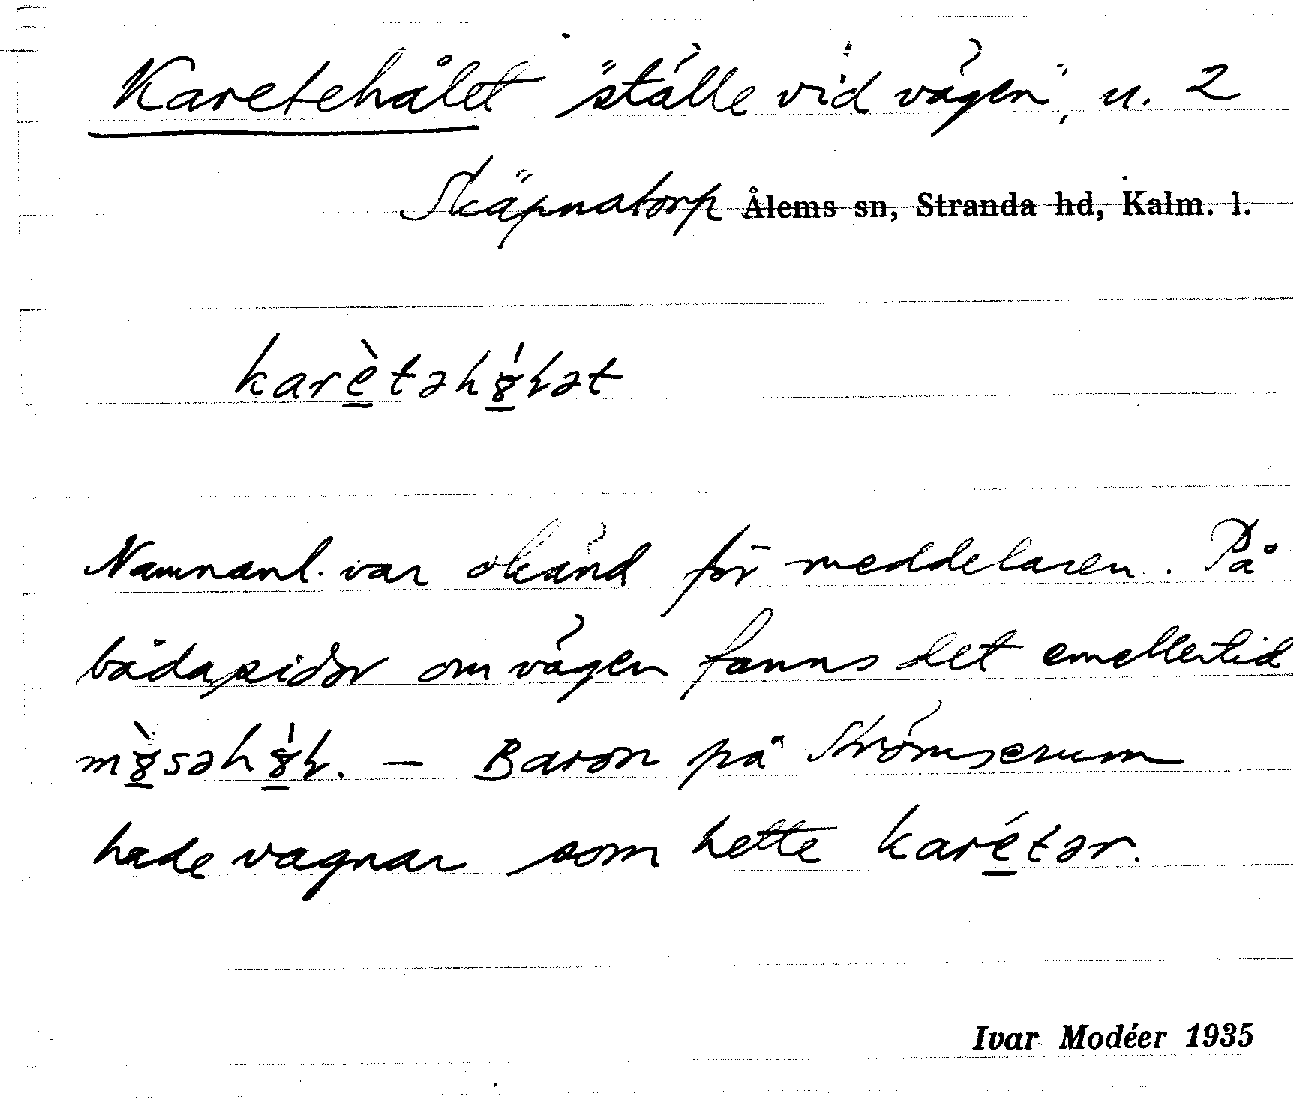 Karetehålet "ställe vid vägen", u. 2
Skäpnatorp Ålems sn, Stranda hd, Kalm. l.
karè̱təhȣ̱́ɫət
Namnanl. var okänd för meddelaren. På
bådasidor om vägen fanns det emellertid
mȣ̱̀səhȣ̱́ɫ. – Baron på Strömserum
hade vagnar som hette karé̱tər.
Ivar Modéer 1935